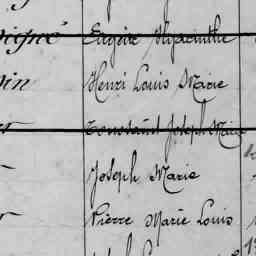 Eugène Hyacinthe
Henri Louis Marie
Toussaint Joseph Marie
Joseph Marie
Pierre Marie Louis